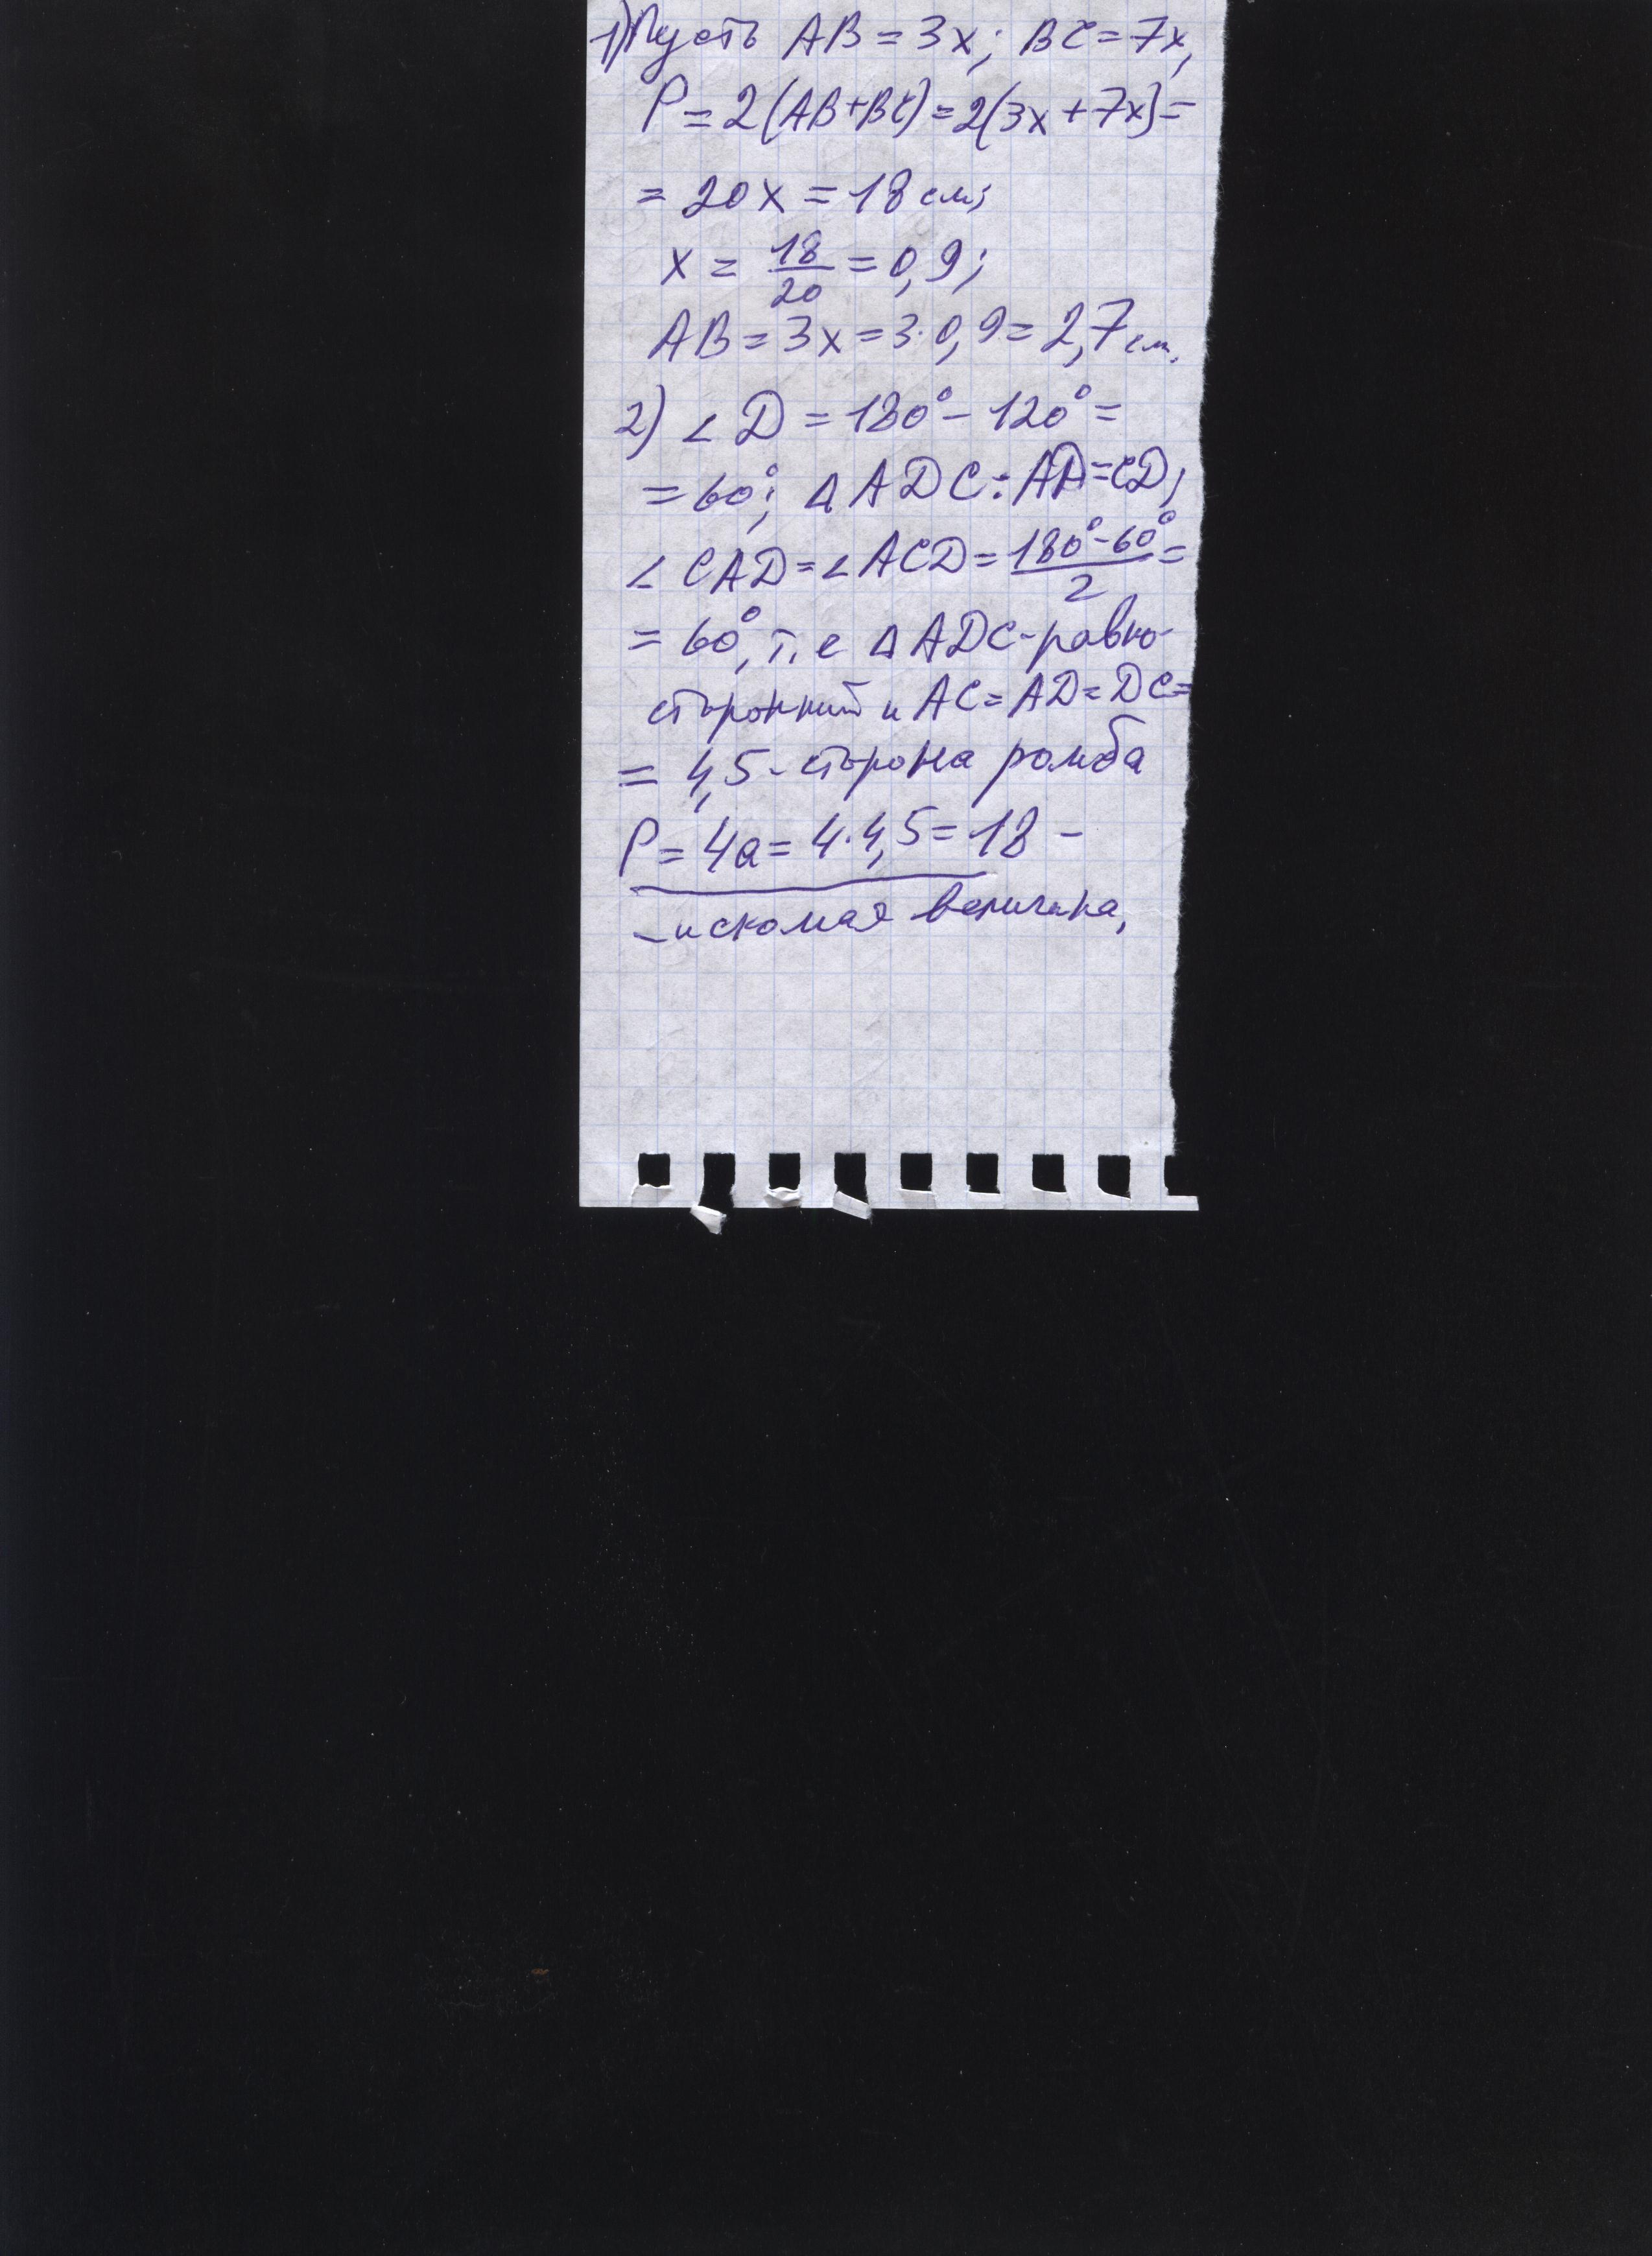 1) Пусть AB = 3x; BC = 7x,
P = 2(AB+BC) = 2(3x + 7x) =
= 20x = 18 см;
x = 18/20 = 0,9;
AB = 3x = 3·0,9 = 2,7 см.
2) ∠D = 180° - 120° =
= 60°; △ADC: AD = CD;
∠CAD = ∠ACD = (180°-60°)/2 =
= 60°, т.е △ADC - равно-
сторонний и AC = AD = DC =
= 4,5 - сторона ромба
P = 4a = 4·4,5 = 18 -
- искомая величина,